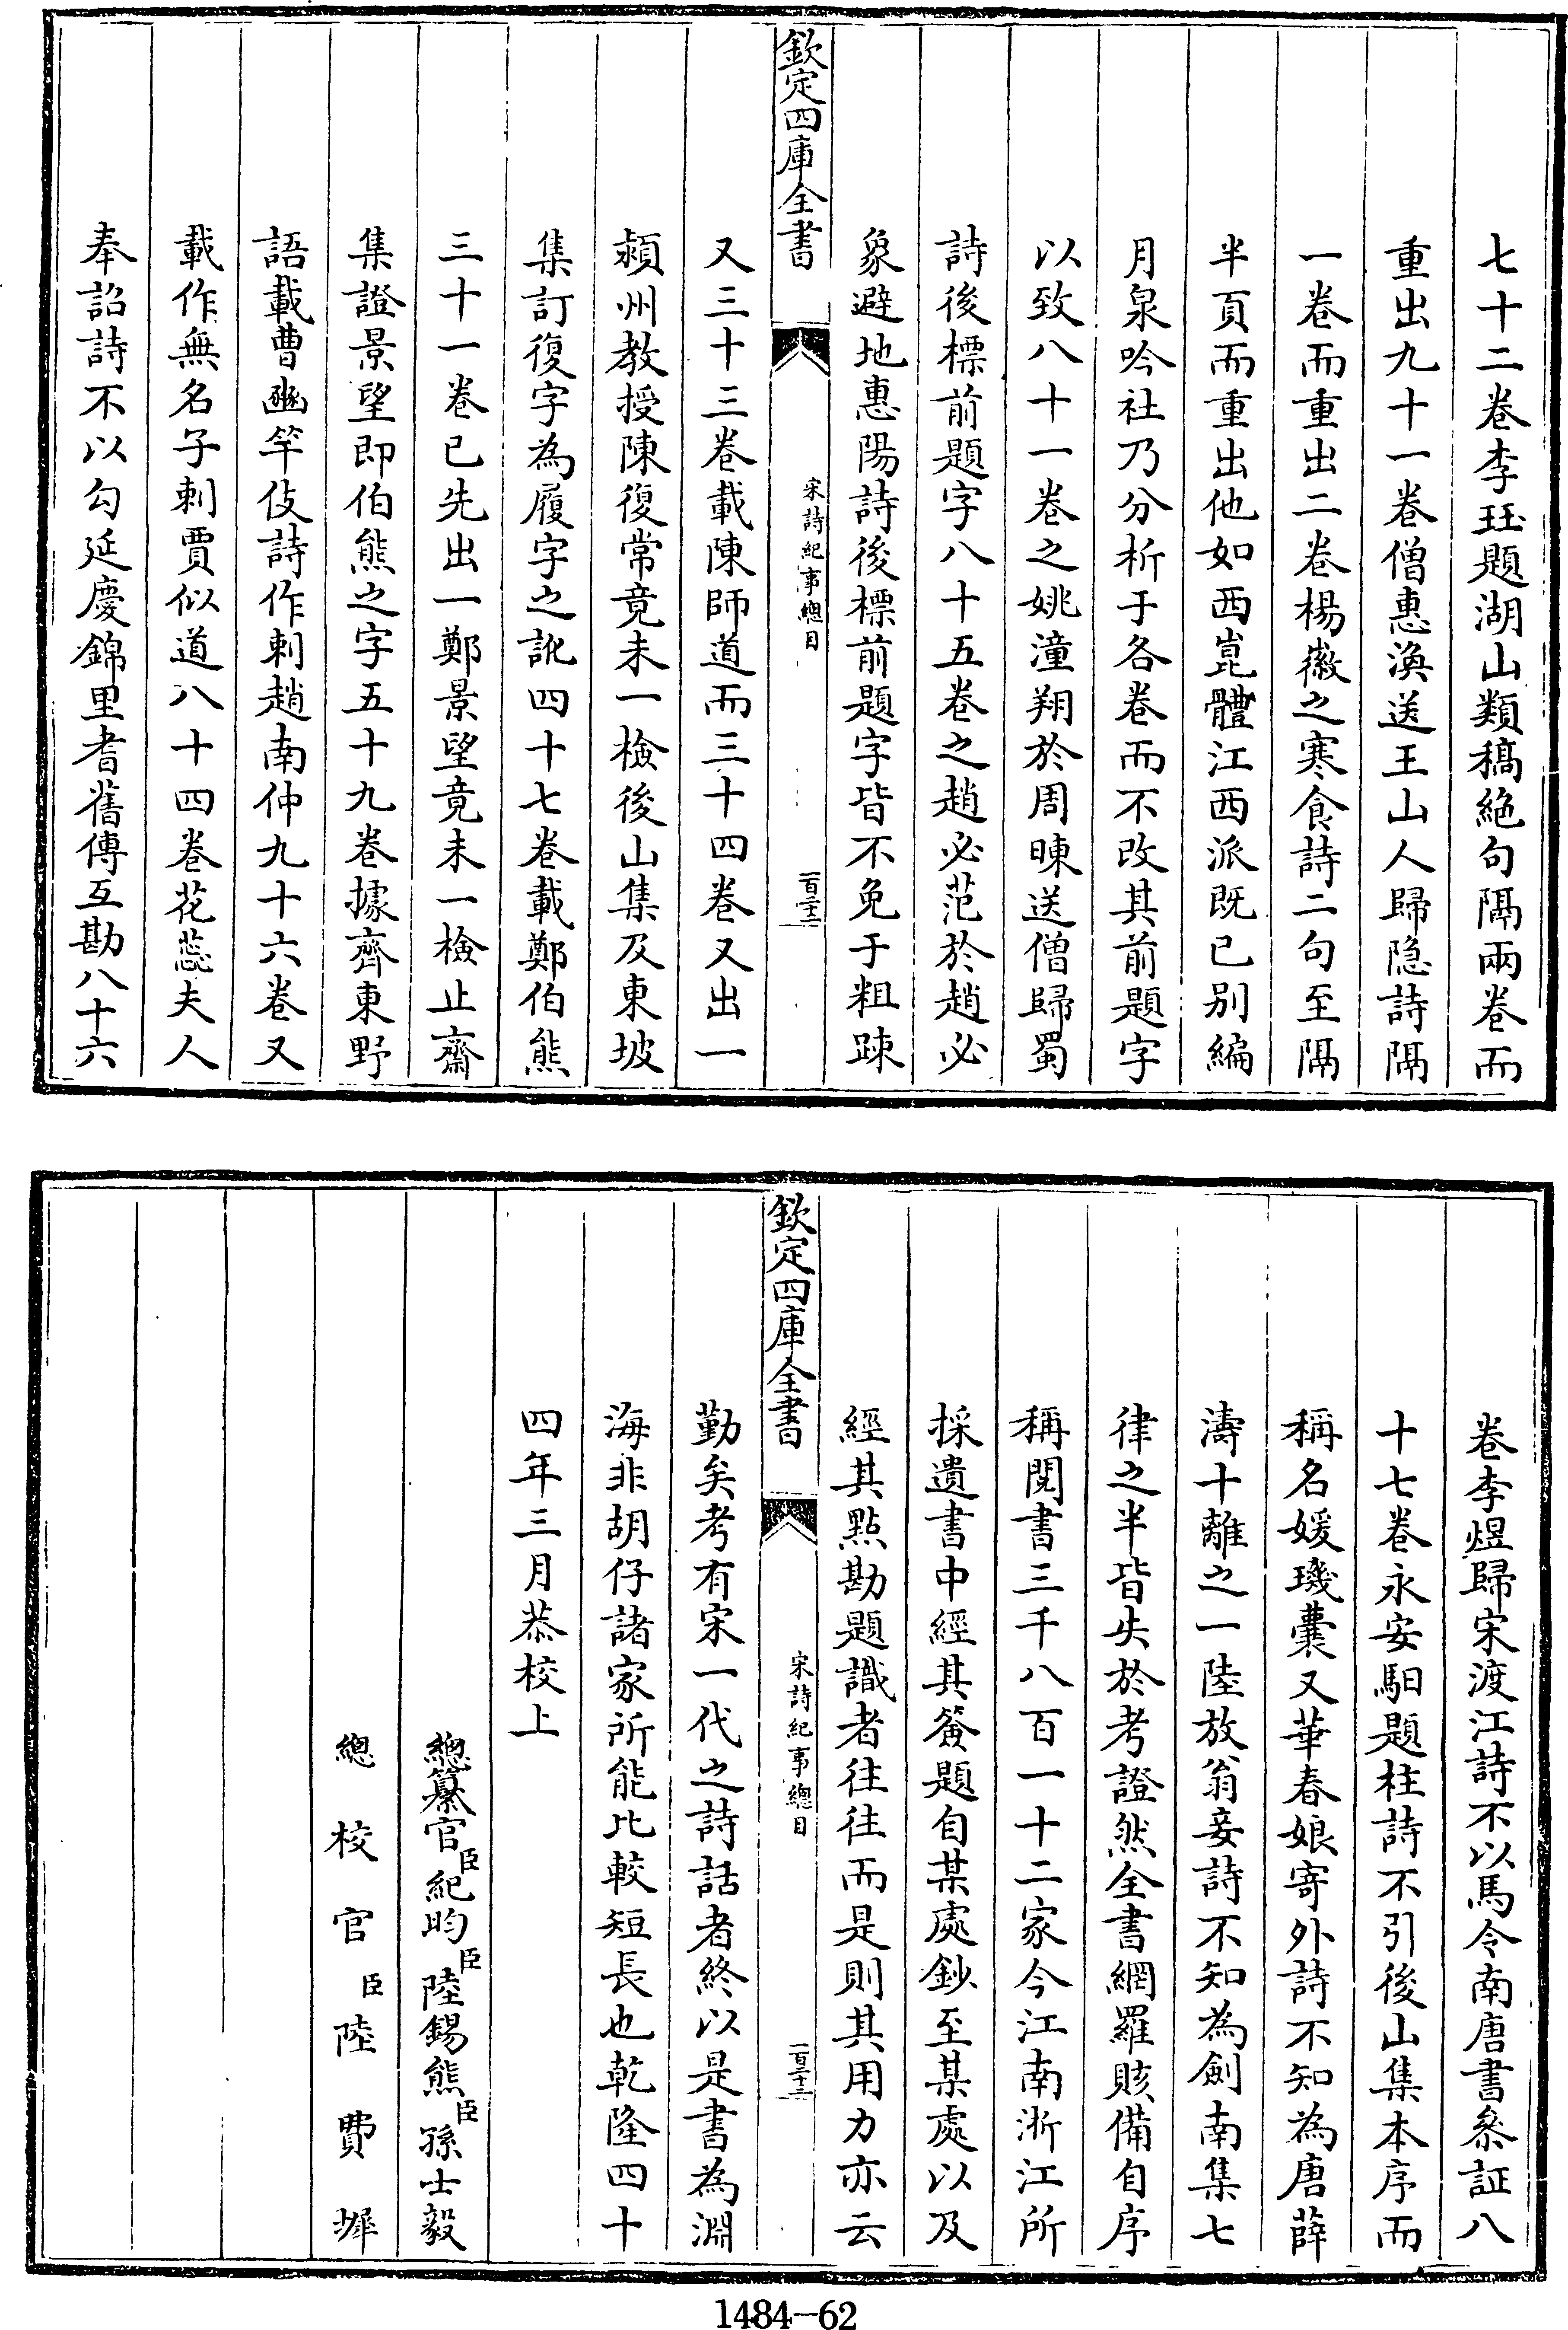 七十二卷李珏題湖山類稿絶句隔兩卷而
重出九十一卷僧惠渙送王山人歸隐詩隔
一卷而重出二卷楊徽之寒食詩二句至隔
半頁而重出他如西崑體江西派既已别編
月泉吟社乃分析于各卷而不改其前題字
以致八十一卷之姚潼翔於周暕送僧歸蜀
詩後標前題字八十五卷之趙必范於趙必
象避地惠陽詩後標前題字皆不免于粗踈
欽定四庫全書
宋詩紀事總目
一百三十二
又三十三卷載陳師道而三十四卷又出一
潁州教授陳復常竟未一檢後山集及東坡
集訂復字為履字之訛四十七卷載鄭伯熊
三十一卷已先出一鄭景望竟未一檢止齋
集證景望即伯熊之字五十九卷據齊東野
語載曹豳竿伎詩作刺趙南仲九十六卷又
載作無名子刺賈似道八十四卷花蕊夫人
奉詔詩不以勾延慶錦里耆舊傳互勘八十六
卷李煜歸宋渡江詩不以馬令南唐書叅証八
十七卷永安馹題柱詩不引後山集本序而
稱名媛璣囊又華春娘寄外詩不知為唐薛
濤十離之一陸放翁妾詩不知為劍南集七
律之半皆失於考證然全書網羅賅備自序
稱閱書三千八百一十二家今江南浙江所
採遺書中經其簽題自某處鈔至某處以及
經其點勘題識者往往而是則其用力亦云
欽定四庫全書
宋詩紀事總目
一百三十三
勤矣考有宋一代之詩話者終以是書為淵
海非胡仔諸家所能比較短長也乾隆四十
四年三月恭校上
總纂官臣紀昀臣陸錫熊臣孫士毅
總校官臣陸費墀
1484-62